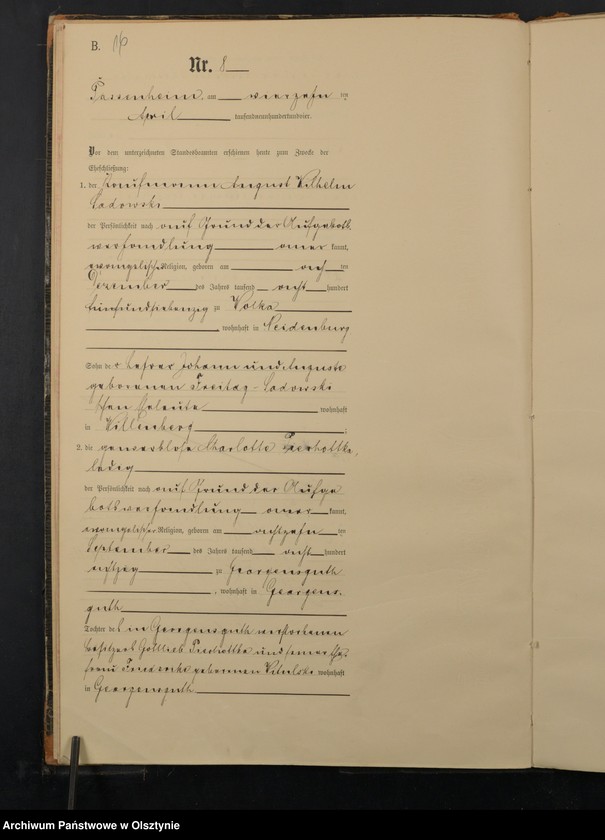 B. 16
Nr. 8
Passenheim, am vierzehn ten
April tausendneunhundertundvier.
Vor dem unterzeichneten Standesbeamten erschienen heute zum Zwecke der
Eheschließung:
1. der Kaufmann August Wilhelm
Sadowski
der Persönlichkeit nach auf Grund der Aufgebots
verhandlung aner kannt,
evangelischer Religion, geboren am ten
Dezember des Jahres tausend acht hundert
fünfundsiebenzig zu Wolka
, wohnhaft in Neidenburg
Sohn der Lehrer Johann und Auguste
geborenen Freitag-Sadowski
schen Eheleute wohnhaft
in Willenberg
2. die gewerblose Charlotte
ledig
der Persönlichkeit nach auf Grund der Aufge
botsverhandlung aner kannt,
evangelischer Religion, geboren am achtzehn ten
September des Jahres tausend acht hundert
achtzig zu Georgensguth
, wohnhaft in Georgens-
guth
Tochter des in Georgensguth verstorbenen
Besitzers Gottlieb und seiner Ehe-
frau Friederike geborenen wohnhaft
in Georgensguth
Archiwum Państwowe w Olsztynie